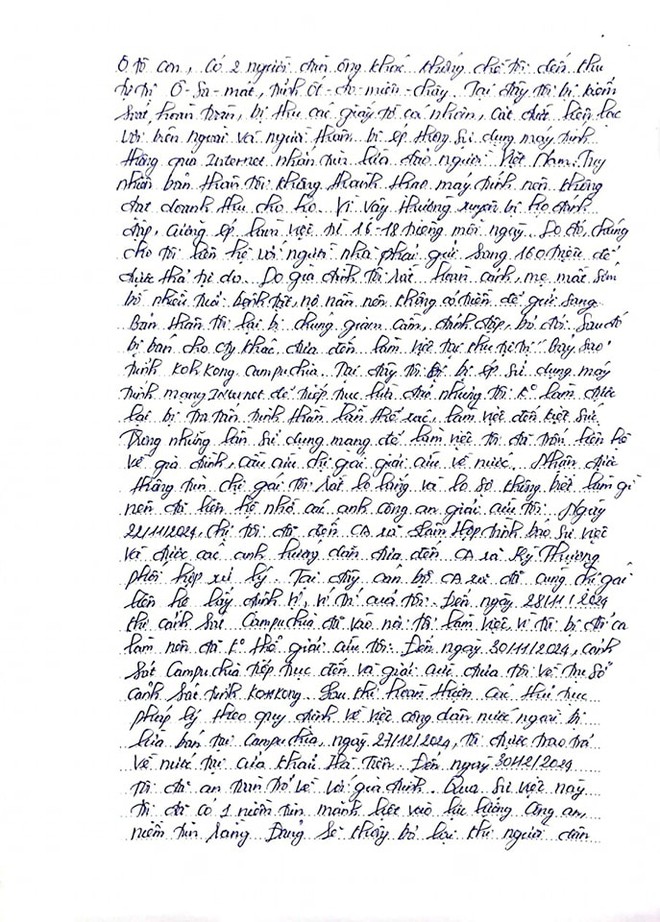 Ô tô con, có 2 người đàn ông khác khống chế tôi đến khu
tự trị Ô-Sa-mát, tỉnh Ốt-đo-miên-chây. Tại đây tôi bị kiểm
soát hoàn toàn, bị thu các giấy tờ cá nhân, cắt đứt liên lạc
với bên ngoài và người thân, bị ép buộc sử dụng máy tính
thông qua Internet nhắn tin lừa đảo người Việt Nam. Tuy
nhiên bản thân tôi không thành thạo máy tính nên không
đạt doanh thu cho họ. Vì vậy thường xuyên bị họ đánh
đập, cưỡng ép làm việc từ 16-18 tiếng mỗi ngày. Do đó, chúng
cho tôi liên hệ với người nhà phải gửi sang 160 triệu để
được thả tự do. Do gia đình tôi rất hoàn cảnh, mẹ mất sớm
bố nhiều tuổi bệnh tật, nợ nần nên không có tiền để gửi sang.
Bản thân tôi lại bị chúng giam cầm, đánh đập, bỏ đói. Sau đó
bị bán cho cty khác, đưa đến làm việc tại khu tự trị Bay Sao
tỉnh Koh Kong Campuchia. Tại đây tôi bị ép sử dụng máy
tính mạng Internet để tiếp tục lừa đảo nhưng tôi k° làm được
lại bị tra tấn tinh thần lẫn thể xác, làm việc đến kiệt sức.
Trong những lần sử dụng mạng để làm việc tôi đã trốn liên hệ
về gia đình, cầu cứu chị gái giải cứu về nước. Nhận được
thông tin chị gái tôi rất lo lắng và lo sợ không biết làm gì
nên đã liên hệ nhờ các anh công an giải cứu tôi. Ngày
22/11/2024, chị tôi đã đến CA xã Lâm Hợp trình báo sự việc
và được các anh hướng dẫn đưa đến CA xã Kỳ Thượng
phối hợp xử lý. Tại đây cán bộ CA xã đã cùng chị gái
liên hệ lấy định vị, vị trí của tôi. Đến ngày 28/11/2024
thì cảnh sát Campuchia đã vào nơi tôi làm việc, vì tôi bị đổi ca
làm nên đã k° thể giải cứu tôi. Đến ngày 30/11/2024, cảnh
sát Campuchia tiếp tục đến và giải cứu đưa tôi về trụ sở
cảnh sát tỉnh Kohkong. Sau khi hoàn thiện các thủ tục
pháp lý theo quy định về việc công dân nước ngoài bị
lừa bán tại Campuchia, ngày 27/12/2024, tôi được trao trả
về nước tại cửa khẩu Hà Tiên. Đến ngày 30/12/2024
tôi đã an toàn trở về với gia đình. Qua sự việc này
tôi đã có 1 niềm tin mãnh liệt vào lực lượng Công an,
niềm tin rằng Đảng sẽ không bỏ lại khi người dân